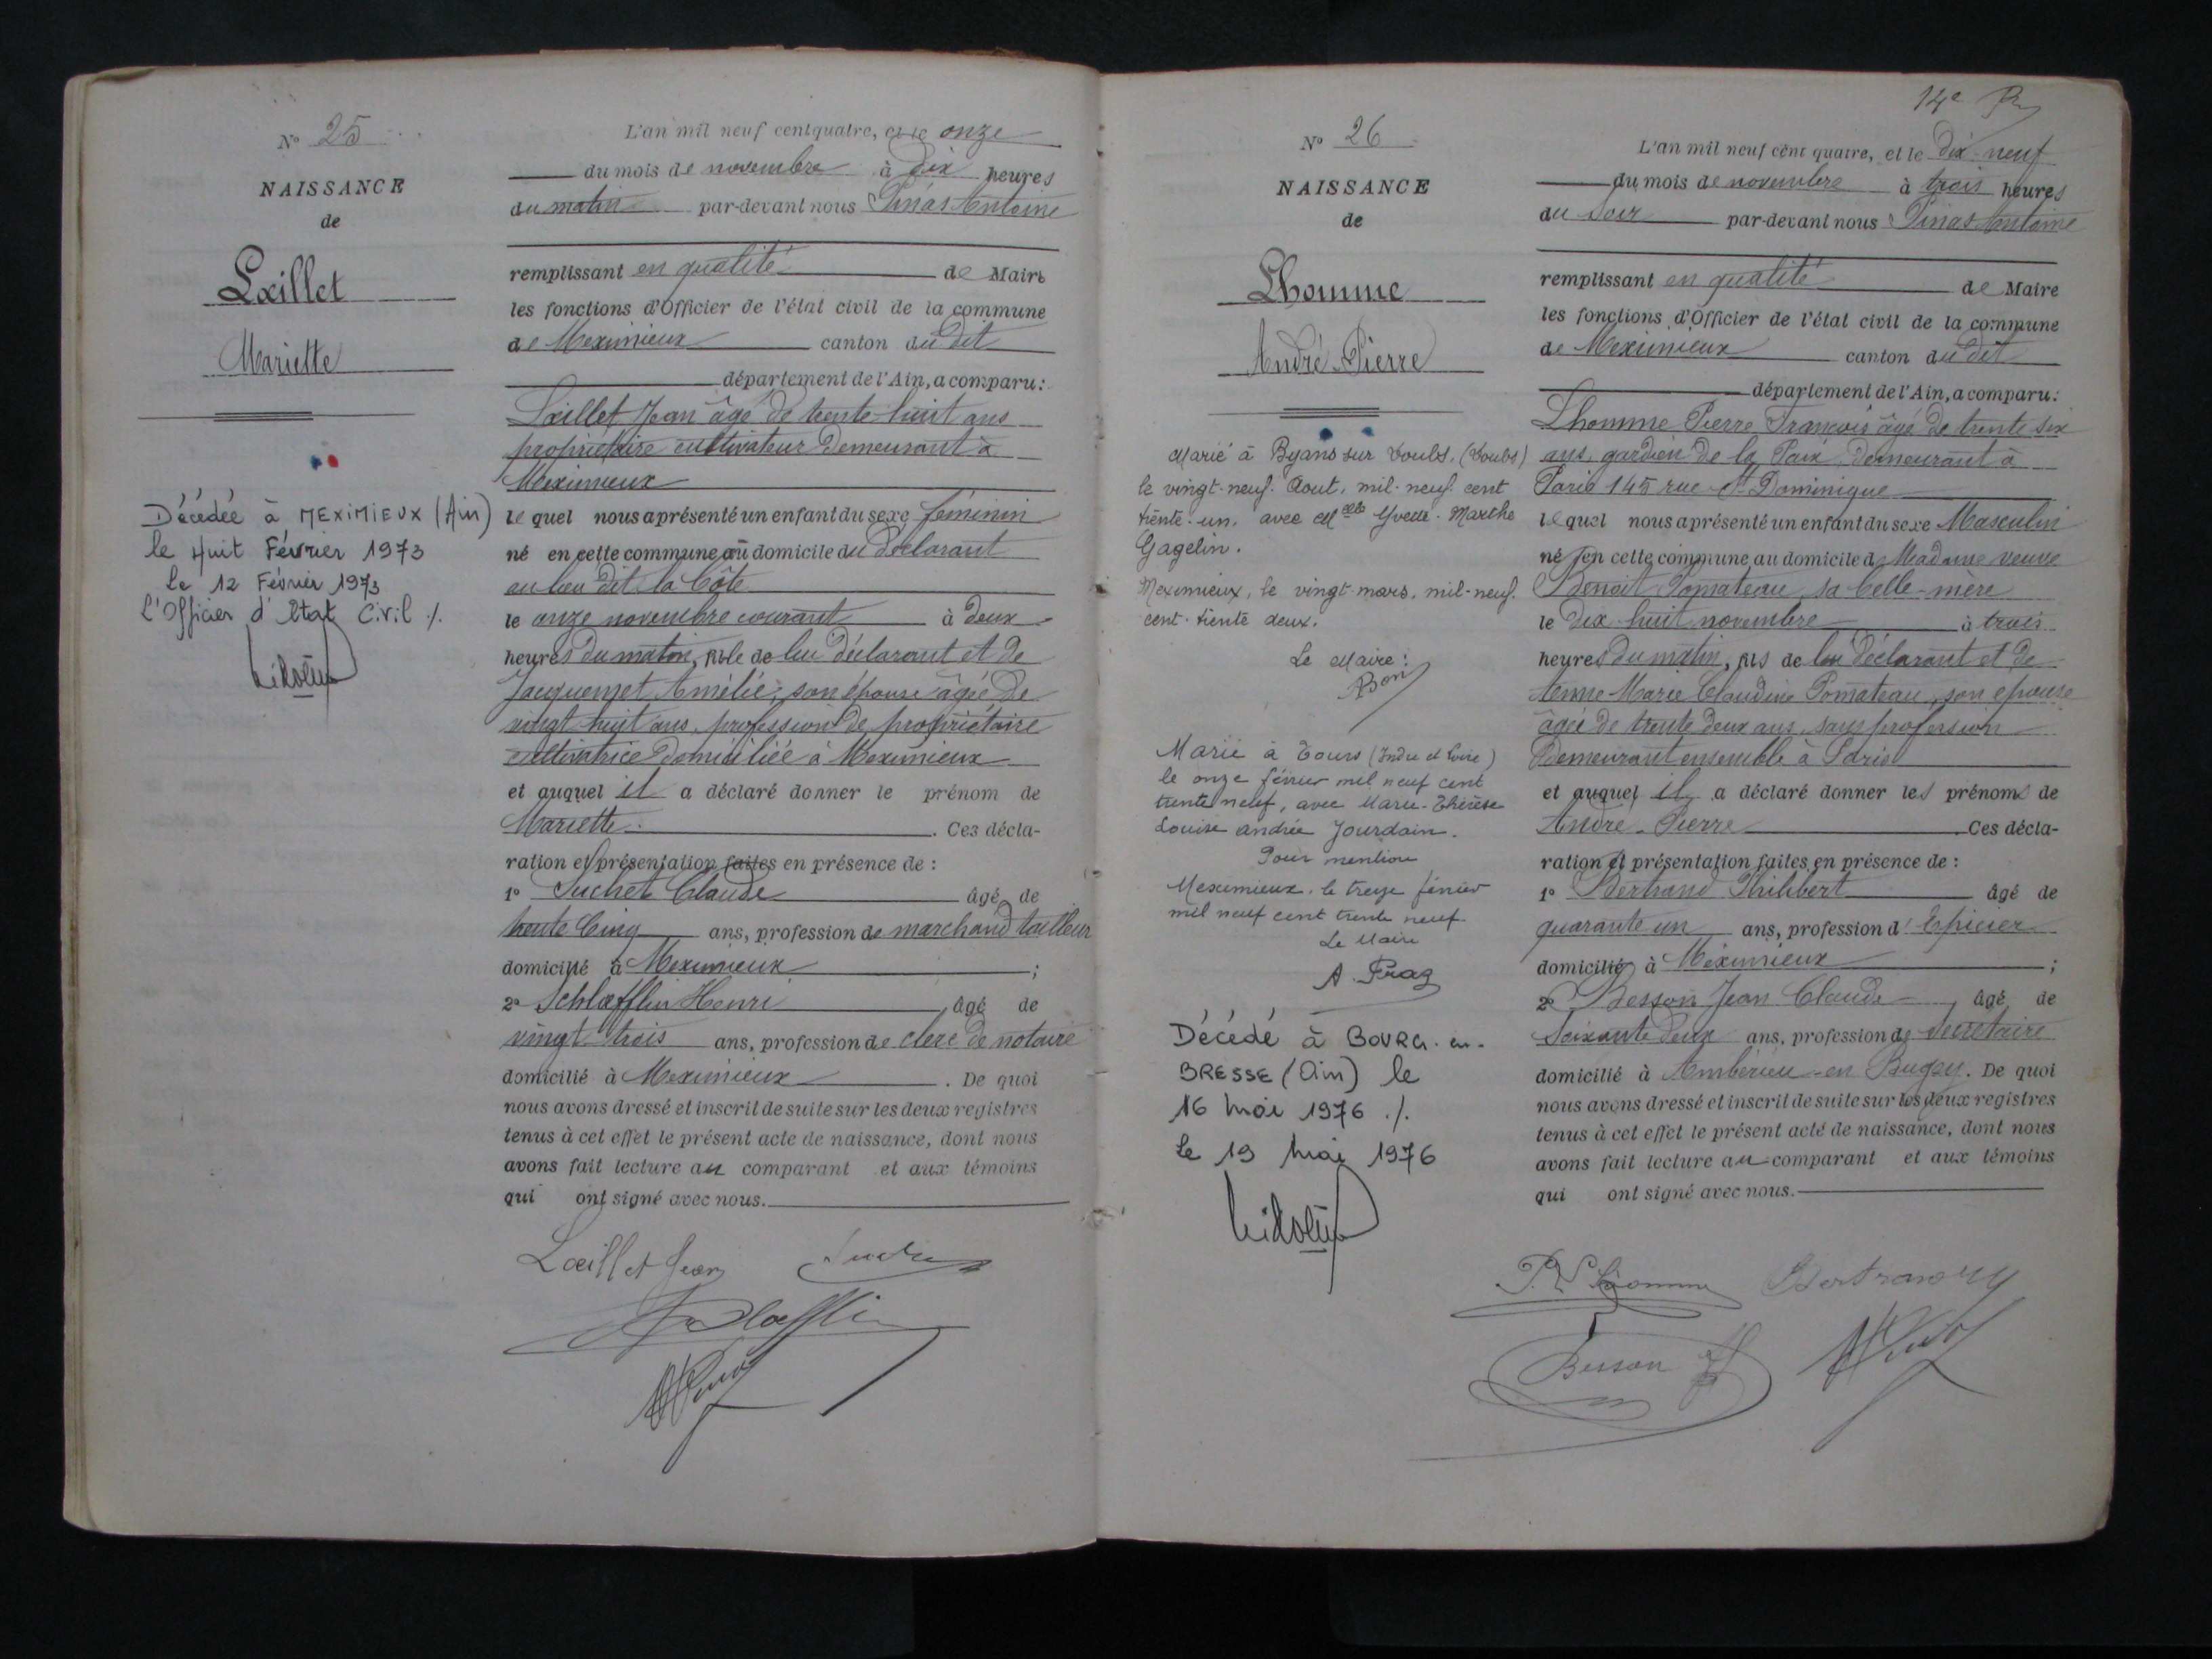 N° 25
NAISSANCE
de
Lœillet
Mariette
Décédée à MEXIMIEUX (Ain)
le Huit Février 1973
Le 12 Février 1973
L'Officier d'Etat Civil ./.
L'an mil neuf cent quatre, et le onze
du mois de novembre à dix heures
du matin par-devant nous Pinas Antoine
remplissant en qualité de Maire
les fonctions d'Officier de l'état civil de la commune
de Meximieux canton du dit
département de l'Ain, a comparu:
Lœillet Jean âgé de trente-huit ans
propriétaire cultivateur demeurant à
Meximieux
lequel nous a présenté un enfant du sexe féminin
né en cette commune au domicile du Déclarant
au lieu dit la Côte
le onze novembre courant à deux
heures du matin, fille de lui déclarant et de
Jacquemet Amélie, son épouse âgée de
vingt huit ans, profession de propriétaire
cultivatrice domiciliée à Meximieux
et auquel il a déclaré donner le prénom de
Mariette. Ces décla-
ration et présentation faites en présence de :
1° Suchet Claude âgé de
trente Cinq ans, profession de marchand tailleur
domicilié à Meximieux ;
2° Schlœfflin Henri, âgé de
vingt trois ans, profession de clerc de notaire
domicilié à Meximieux. De quoi
nous avons dressé et inscrit de suite sur les deux registres
tenus à cet effet le présent acte de naissance, dont nous
avons fait lecture au comparant et aux témoins
qui ont signé avec nous.
Lœillet Jean
14e
N° 26
NAISSANCE
de
Lhomme
André-Pierre
Marié à Byans sur Doubs. (Doubs)
le vingt-neuf. Aout. mil-neuf. cent
trente-un. avec Melle Yvette-Marthe
Gagelin.
Meximieux, le vingt-mars. mil-neuf.
cent-trente deux.
Le Maire:
Bon
Marié à Tours (Indre et Loire)
le onze février mil neuf cent
trente neuf, avec Marie-Thérèse
Louise Andrée Jourdain.
Pour mention
Meximieux. le treize février
mil neuf cent trente neuf.
Le Maire
Décédé à BOURG-en-
BRESSE (Ain) le
16 Mai 1976 ./.
Le 19 Mai 1976
L'an mil neuf cent quatre, et le dix-neuf
du mois de novembre à trois heures
du soir par-devant nous Pinas Antoine
remplissant en qualité de Maire
les fonctions d'Officier de l'état civil de la commune
de Meximieux canton du dit
département de l'Ain, a comparu:
Lhomme Pierre François âgé de trente six
ans, gardien de la Paix, demeurant à
Paris 145 rue St Dominique
lequel nous a présenté un enfant du sexe Masculin
né en cette commune au domicile de Madame veuve
Benoit Pomateau, sa belle-mère
le dix-huit novembre à trois
heures du matin, fils de lui déclarant et de
Anne Marie Claudine Pomateau, son épouse
âgée de trente deux ans, sans profession
demeurant ensemble à Paris
et auquel il a déclaré donner les prénoms de
André-Pierre. Ces décla-
ration et présentation faites en présence de :
1° Bertrand Philibert âgé de
quarante un ans, profession d'Epicier
domicilié à Meximieux ;
2° Besson Jean Claude, âgé de
Soixante deux ans, profession de secrétaire
domicilié à Ambérieu-en Bugey. De quoi
nous avons dressé et inscrit de suite sur les deux registres
tenus à cet effet le présent acte de naissance, dont nous
avons fait lecture au comparant et aux témoins
qui ont signé avec nous.
Besson